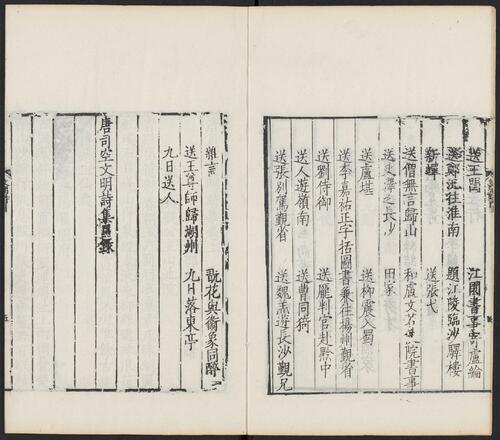 送王閏　江園書事寄盧綸
送鄭況往淮南　題江陵臨沙驛樓
新蟬　送張弋
送僧無言歸山　和盧文　院書事
送史澤之長沙　田家
送盧堪　送柳震入蜀
送李嘉祐正字括圖書兼往揚州覲省
送劉侍御　送龐判官赴黔中
送人遊嶺南　送曹同猗
送張別駕覲省　送魏季羔遊長沙覲兄
雜言　翫花與衛象同醉
送王尊師歸湖州　九日落東亭
九日送人
唐司空文明詩集目錄